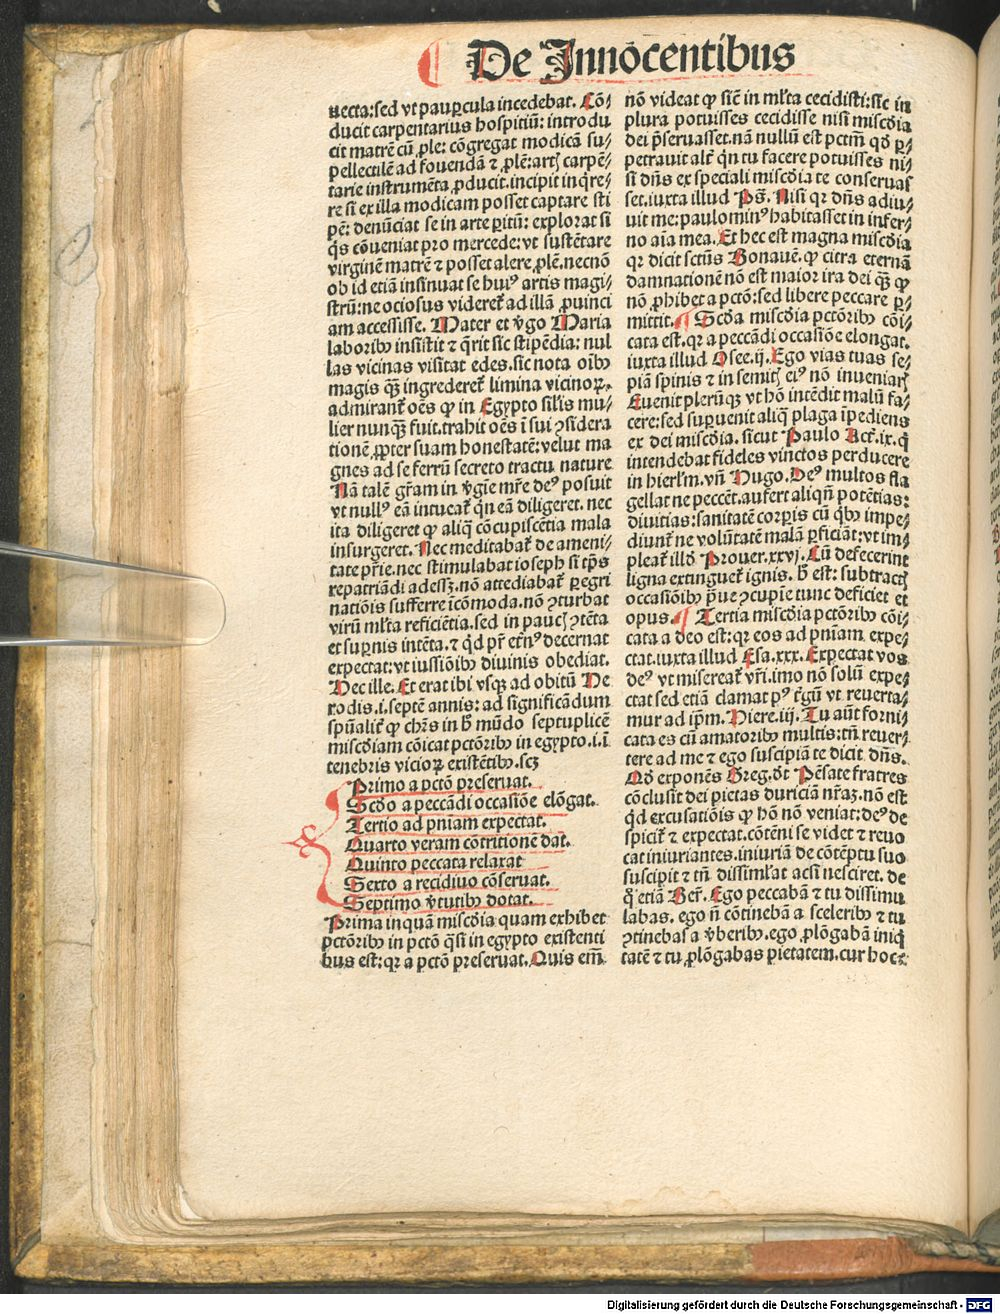 De Innocentibus
uecta: sed vt paupercula incedebat. Cō⸗
ducit carpentarius hospitiū: introdu
cit matrē cū ꝓle: cōgregat modicā su⸗
pellectilē ad fouendā ⁊ ꝓlē: artꝭ carpē⸗
tarie instrumēta ꝓducit. incipit inq̄re⸗
re si ex illa modicam posset captare sti
pē: denūciat se in arte ꝑitū: explorat si
q̄s cōueniat pro mercede: vt sustētare
virginē matrē ⁊ posset alere ꝓlē. necnō
ob id etiā insinuat se huiꝰ artis magi⸗
strū: ne ociosus videret᷑ ad illā ꝓuinci
am accessisse. Mater et v̄go Maria
laboribꝰ insistit ⁊ q̄rit sic stipēdia: nul
las vicinas visitat edes. sic nota oībꝰ
magis qꝫ ingrederet᷑ limina vicinoꝝ.
admirant᷑ oēs ꝙ in Egypto silīs mu⸗
lier nunqꝫ fuit. trahit oēs ī sui ꝯsidera
tionē ꝓpter suam honestatē: velut ma
gnes ad se ferrū secreto tractu nature
Nā talē gr̄am in v̄gīe mr̄e deꝰ posuit
vt nullꝰ eā intueat᷑ q̄n eā diligeret. nec
ita diligeret ꝙ aliq̄ cōcupiscētia mala
insurgeret. Nec meditabat᷑ de ameni⸗
tate pr̄ie. nec stimulabat ioseph si tp̄s
repatriādi adessꝫ. nō attediabat᷑ ꝑegri
natiōis sufferre īcōmoda. nō ꝯturbat
virū ml̄ta reficiētia. sed in paucꝭ ꝯtēta
et suꝑnis intēta. ⁊ q̇d pr̄ et̄nꝰ decernat
expectat: vt iussiōibꝰ diuinis obediat.
Hec ille. Et erat ibi vsqꝫ ad obitū He
rodis. i. septē annis: ad significādum
spūalit᷑ ꝙ chr̄s in h̄ mūdo septuplicē
miscōiam cōicat pctōribꝰ in egypto. i. ī
tenebris vicioꝝ existētibꝰ. scꝫ
Primo a pctō preseruat.
Scd̄o a peccādi occasiōe elōgat.
Tertio ad pn̄iam expectat.
Quarto veram cōtritionē dat.
Quinto peccata relaxat
Sexto a recidiuo cōseruat.
Septimo v̄tutibꝰ dotat.
Prima inquā miscōia quam exhibet
pctōribꝰ in pctō q̄si in egypto existenti
bus est: qr a pctō preseruat. Quis em̄
nō videat ꝙ sic̄ in ml̄ta cecidisti: sic in
plura potuisses cecidisse nisi miscōia
dei p̄seruasset. nā nullū est pctm̄ qd̄ ꝑ⸗
petrauit alt᷑ q̄n tu facere potuisses ni⸗
si dn̄s ex speciali miscōia te conseruas
set. iuxta illud Ps̄. Nisi qr dn̄s adiu⸗
uit me: paulominꝰ habitasset in infer⸗
no aīa mea. Et hec est magna miscōia
qr dicit sctūs Bonauē. ꝙ citra eternā
damnationē nō est maior ira dei qꝫ ꝙ
nō ꝓhibet a pctō: sed libere peccare ꝑ⸗
mittit. ¶ Scd̄a miscōia pctōribꝰ cōi⸗
cata est. qr a peccādi occasiōe elongat.
iuxta illud Osee. ij. Ego vias tuas se⸗
piā spinis ⁊ in semitꝭ eiꝰ nō inueniarꝭ
Euenit plerūqꝫ vt hō intēdit malū fa⸗
cere: sed suꝑuenit aliq̄ plaga īpediens
ex dei miscōia. sicut Paulo Act᷑. ix. q̇
intendebat fideles vinctos perducere
in hierl̄m. vn̄ Hugo. Deꝰ multos fla
gellat ne peccēt. aufert aliqn̄ potētias:
diuitias: sanitatē corꝑis cū q̇bꝰ impe⸗
diunt᷑ ne volūtatē malā ꝑficiāt: vt im⸗
pleat᷑ ill̄d Prouer. xxvj. Cū defecerint
ligna extinguet᷑ ignis. h̄ est: subtractꝭ
occasiōibꝰ p̄ue ꝯcupie tunc deficiet et
opus. ¶ Tertia miscōia pctōribꝰ cōi⸗
cata a deo est: qr eos ad pn̄iam expe⸗
ctat. iuxta illud Esa. xxx. Expectat vos
deꝰ vt misereat᷑ vr̄i. imo nō solū expe⸗
ctat sed etiā clamat pꝰ t̄gū vt reuerta⸗
mur ad ip̄m. Hiere. iij. Tu aūt forni⸗
cata es cū amatoribꝰ multis: tn̄ reuer⸗
tere ad me ⁊ ego suscipiā te dicit dn̄s.
Qd̄ exponēs Greg. d̄t Pēsate fratres
cōclusit dei pietas duriciā nr̄aꝫ. nō est
q̇d excusatiōis ꝙ hō nō veniat: deꝰ de
spicit᷑ ⁊ expectat. cōtēni se videt ⁊ reuo
cat iniuriantes. iniuriā de cōtēptu suo
suscipit ⁊ tn̄ dissiml̄at acsi nesciret. de
q̊ etiā Ber̄. Ego peccabā ⁊ tu dissimu
labas. ego n̄ cōtinebā a sceleribꝰ ⁊ tu
ꝯtinebas a v̄beribꝰ. ego ꝓlōgabā iniq̇
tatē ⁊ tu ꝓlōgabas pietatem. cur hoc⸗
Digitalisierung gefördert durch die Deutsche Forschungsgemeinschaft - DFG